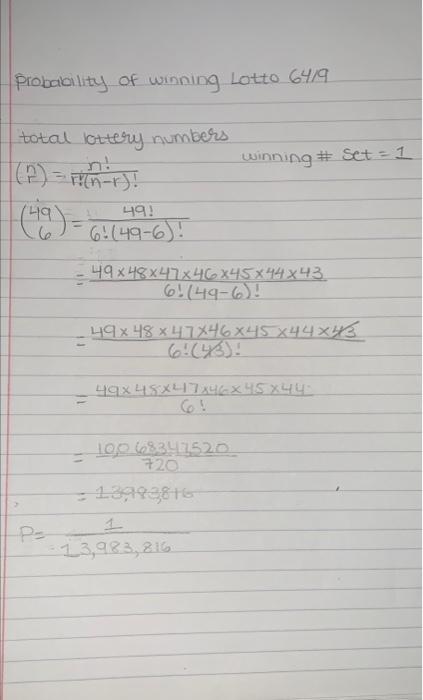 Probability of winning Lotto 64/9
total lottery numbers
winning # set = 1
(n r) = n! / r!(n-r)!
(49 6) = 49! / 6!(49-6)!
= 49×48×47×46×45×44×43 / 6!(49-6)!
= 49×48×47×46×45×44×43 / 6!(43)!
= 49×48×47×46×45×44 / 6!
= 10,068347520 / 720
= 13,983,816
P= 1 / 13,983,816